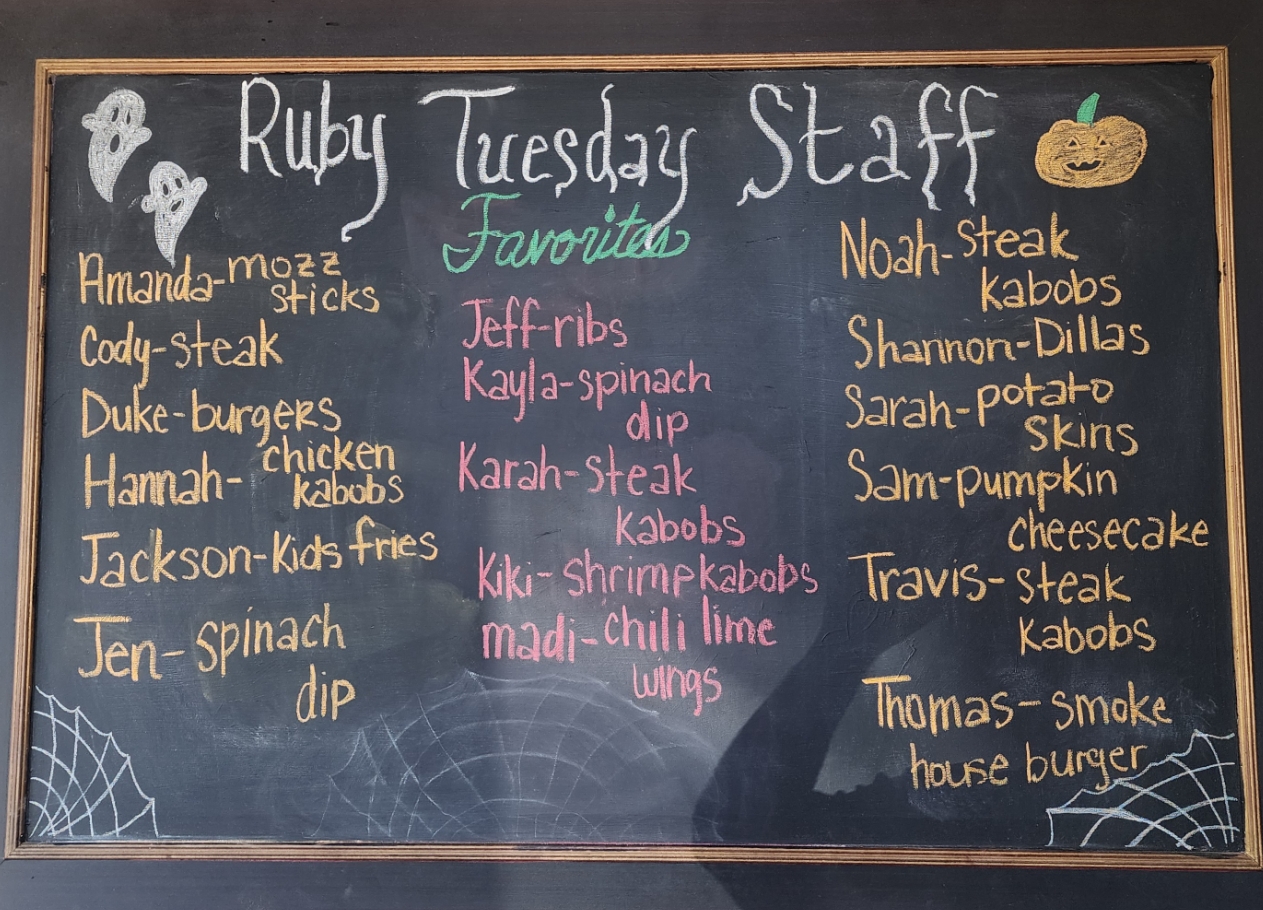 Ruby Tuesday Staff
Favorites
Amanda-mozz
sticks
Cody-steak
Duke-burgers
Hannah-chicken
kabobs
Jackson-Kids fries
Jen-spinach
dip
Jeff-ribs
Kayla-spinach
dip
Karah-steak
kabobs
Kiki-shrimp kabobs
madi-chili lime
wings
Noah-steak
kabobs
Shannon-Dillas
Sarah-potato
skins
Sam-pumpkin
cheesecake
Travis-steak
kabobs
Thomas-smoke
house burger